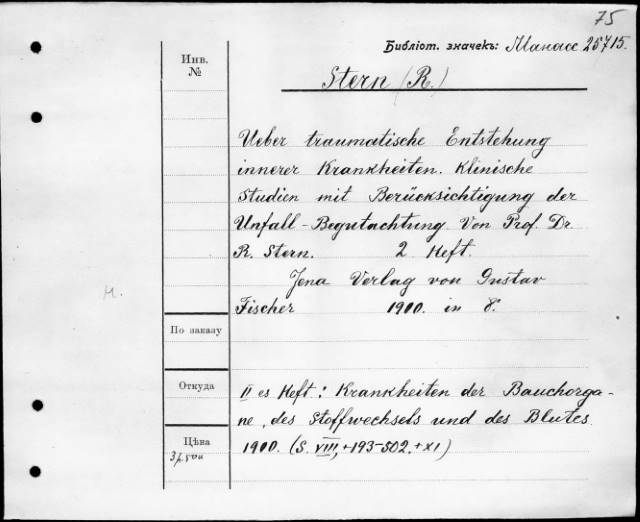 75
Библіот. значекъ: Манассе 25715.
Инв.
№
Stern (R.)
Ueber traumatische Entstehung
innerer Krankheiten. Klinische
Studien mit Berücksichtigung der
Unfall-Begutachtung. Von Prof. Dr.
R. Stern. 2 Heft.
Jena Verlag von Gustav
Fischer 1900. in 8.
М.
По заказу
Откуда
II es Heft: Krankheiten der Bauchorga-
ne, des Stoffwechsels und des Blutes
1900. (S. VIII, +193-502. + XI)
Цѣна